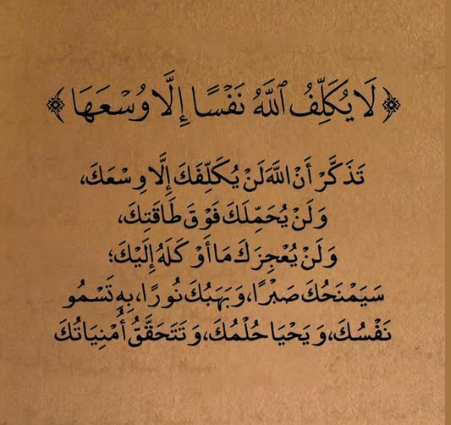 ﴿ لَا يُكَلِّفُ ٱللَّهُ نَفْسًا إِلَّا وُسْعَهَا ﴾
تَذَكَّرْ أَنَّ اللَّهَ لَنْ يُكَلِّفَكَ إِلَّا وِسْعَكَ،
وَلَنْ يُحَمِّلَكَ فَوْقَ طَاقَتِكَ،
وَلَنْ يُعْجِزَكَ مَا أَوْكَلَهُ إِلَيْكَ؛
سَيَمْنَحُكَ صَبْرًا، وَيَهَبُكَ نُورًا، بِهِ تَسْمُو
نَفْسُكَ، وَيَحْيَا حُلْمُكَ، وَتَتَحَقَّقُ أُمْنِيَاتُكَ